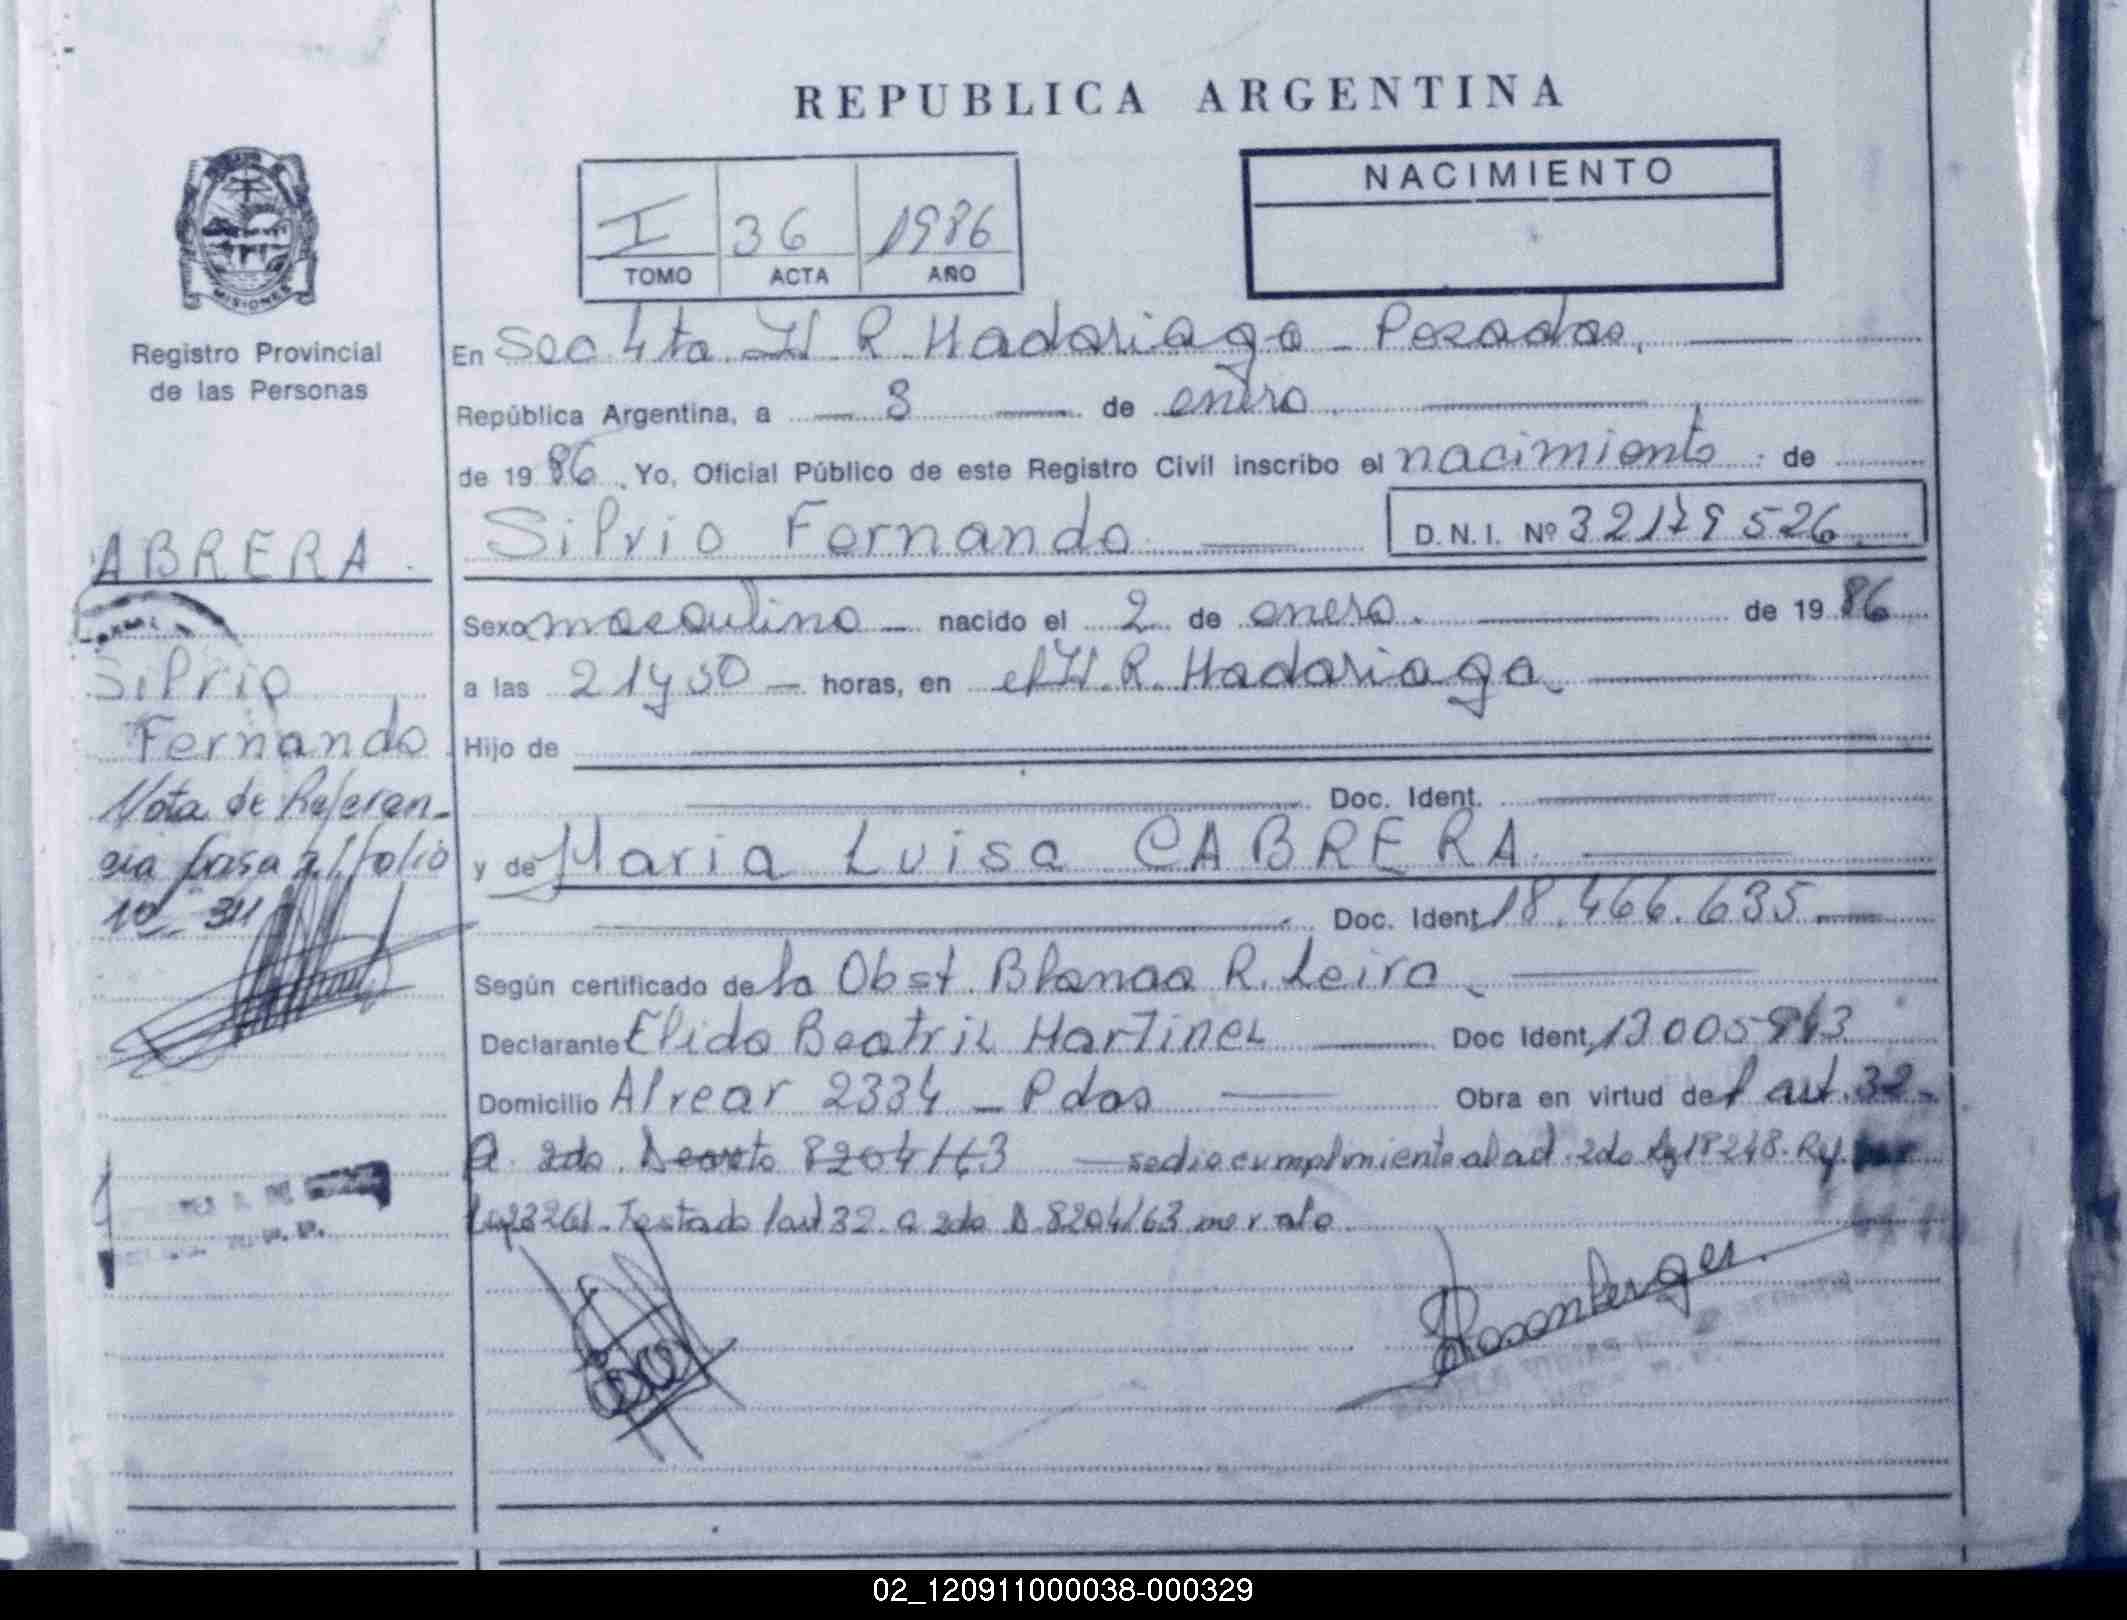 REPUBLICA ARGENTINA
NACIMIENTO
I 36 1986
TOMO ACTA AÑO
MISIONES
Registro Provincial
de las Personas
En Sec 4ta H R Madariaga - Posadas,
República Argentina, a 3 de enero
de 1986, Yo, Oficial Público de este Registro Civil inscribo el nacimiento de
Silvio Fernando D.N.I. Nº 32179526
ABRERA
Sexo masculino nacido el 2 de enero de 1986
a las 21y50 horas, en el H. R. Madariaga
Silvio
Fernando
Hijo de
Doc. Ident.
Nota de Referen-
cia pasa al folio
Nº 311
y de Maria Luisa CABRERA
Doc. Ident. 18.466.635
Según certificado de la Obst. Blanca R. Leiva
Declarante Elida Beatriz Martinez Doc Ident.
Domicilio Alvear 2334 - Pdas Obra en virtud del art. 32-
a 2do Decreto 8204/63 se dio cumplimiento al art. 2do Ley 18248. Ref. por
Ley 23261. Testado / art 32 a 2do D 8204/63 no vale
Rosenberger
02_120911000038-000329